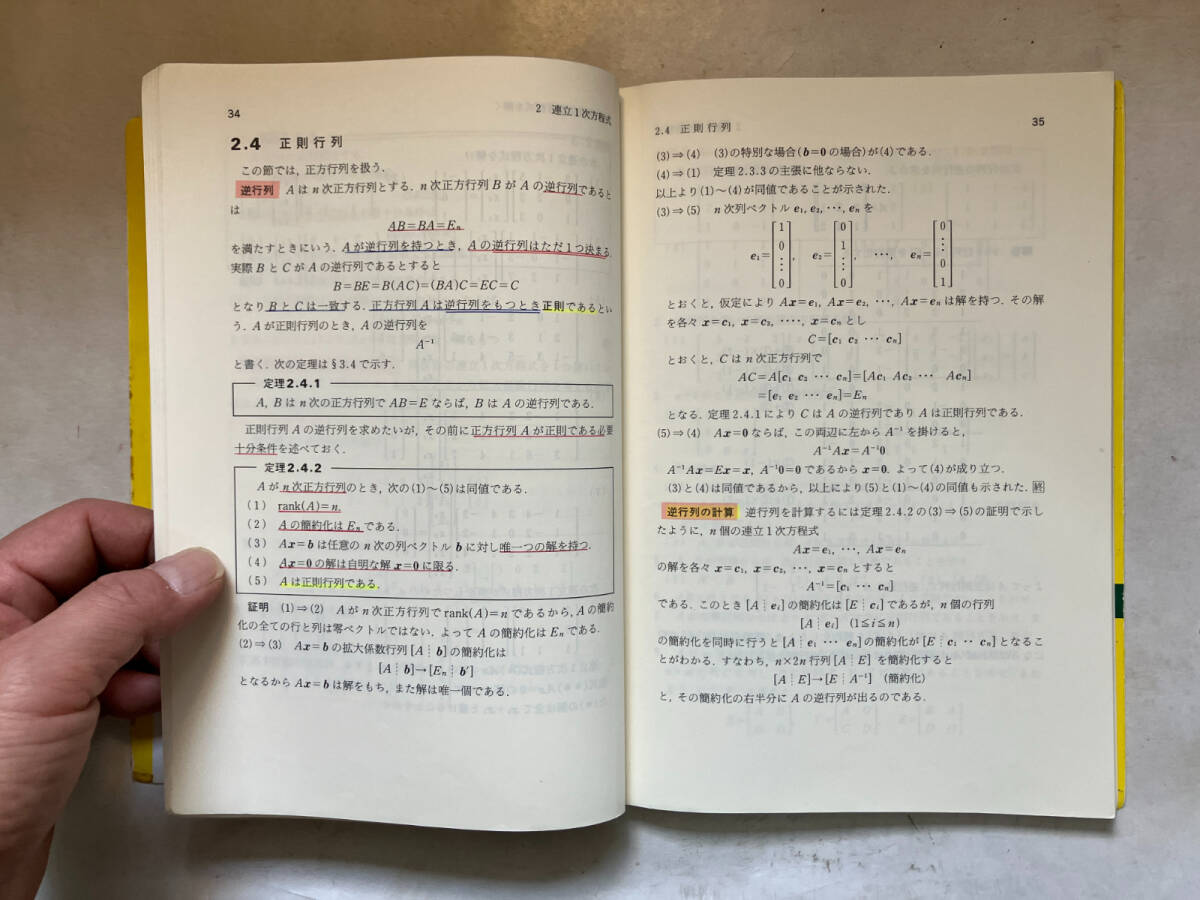 34
2 連立1次方程式
2.4 正則行列
この節では, 正方行列を扱う.
逆行列 Aはn次正方行列とする. n次正方行列BがAの逆行列であると
は
AB=BA=Eₙ
を満たすときにいう. Aが逆行列を持つとき, Aの逆行列はただ1つ決まる.
実際BとCがAの逆行列であるとすると
B=BE=B(AC)=(BA)C=EC=C
となりBとCは一致する. 正方行列Aは逆行列をもつとき正則であるとい
う. Aが正則行列のとき, Aの逆行列を
A⁻¹
と書く. 次の定理は§3.4で示す.
定理2.4.1
A, Bはn次の正方行列でAB=Eならば, BはAの逆行列である.
正則行列Aの逆行列を求めたいが, その前に正方行列Aが正則である必要
十分条件を述べておく.
定理2.4.2
Aがn次正方行列のとき, 次の(1)〜(5)は同値である.
(1) rank(A)=n.
(2) Aの簡約化はEₙである.
(3) Ax=bは任意のn次の列ベクトルbに対し唯一つの解を持つ.
(4) Ax=0の解は自明な解x=0に限る.
(5) Aは正則行列である.
証明 (1)⇒(2) Aがn次正方行列でrank(A)=nであるから, Aの簡約
化の全ての行と列は零ベクトルではない. よってAの簡約化はEₙである.
(2)⇒(3) Ax=bの拡大係数行列[A⋮b]の簡約化は
[A⋮b]→[Eₙ⋮b′]
となるからAx=bは解をもち, また解は唯一個である.
2.4 正則行列
35
(3)⇒(4) (3)の特別な場合(b=0の場合)が(4)である.
(4)⇒(1) 定理2.3.3の主張に他ならない.
以上より(1)〜(4)が同値であることが示された.
(3)⇒(5) n次列ベクトルe₁, e₂, ⋯, eₙを
e₁=[1 0 ⋮ 0], e₂=[0 1 ⋮ 0], ⋯, eₙ=[0 ⋮ 0 1]
とおくと, 仮定によりAx=e₁, Ax=e₂, ⋯, Ax=eₙは解を持つ. その解
を各々x=c₁, x=c₂, ⋯⋅, x=cₙとし
C=[c₁ c₂ ⋯ cₙ]
とおくと, Cはn次正方行列で
AC=A[c₁ c₂ ⋯ cₙ]=[Ac₁ Ac₂ ⋯ Acₙ]
=[e₁ e₂ ⋯ eₙ]=Eₙ
となる. 定理2.4.1によりCはAの逆行列でありAは正則行列である.
(5)⇒(4) Ax=0ならば, この両辺に左からA⁻¹を掛けると,
A⁻¹Ax=A⁻¹0
A⁻¹Ax=Ex=x, A⁻¹0=0であるからx=0. よって(4)が成り立つ.
(3)と(4)は同値であるから, 以上により(5)と(1)〜(4)の同値も示された. 終
逆行列の計算 逆行列を計算するには定理2.4.2の(3)⇒(5)の証明で示し
たように, n個の連立1次方程式
Ax=e₁, ⋯, Ax=eₙ
の解を各々x=c₁, x=c₂, ⋯, x=cₙとすると
A⁻¹=[c₁ ⋯ cₙ]
である. このとき[A⋮eᵢ]の簡約化は[E⋮cᵢ]であるが, n個の行列
[A⋮eᵢ] (1≦i≦n)
の簡約化を同時に行うと[A⋮e₁ ⋯ eₙ]の簡約化が[E⋮c₁ ‥ cₙ]となるこ
とがわかる. すなわち, n×2n行列[A⋮E]を簡約化すると
[A⋮E]→[E⋮A⁻¹] (簡約化)
と, その簡約化の右半分にAの逆行列が出るのである.